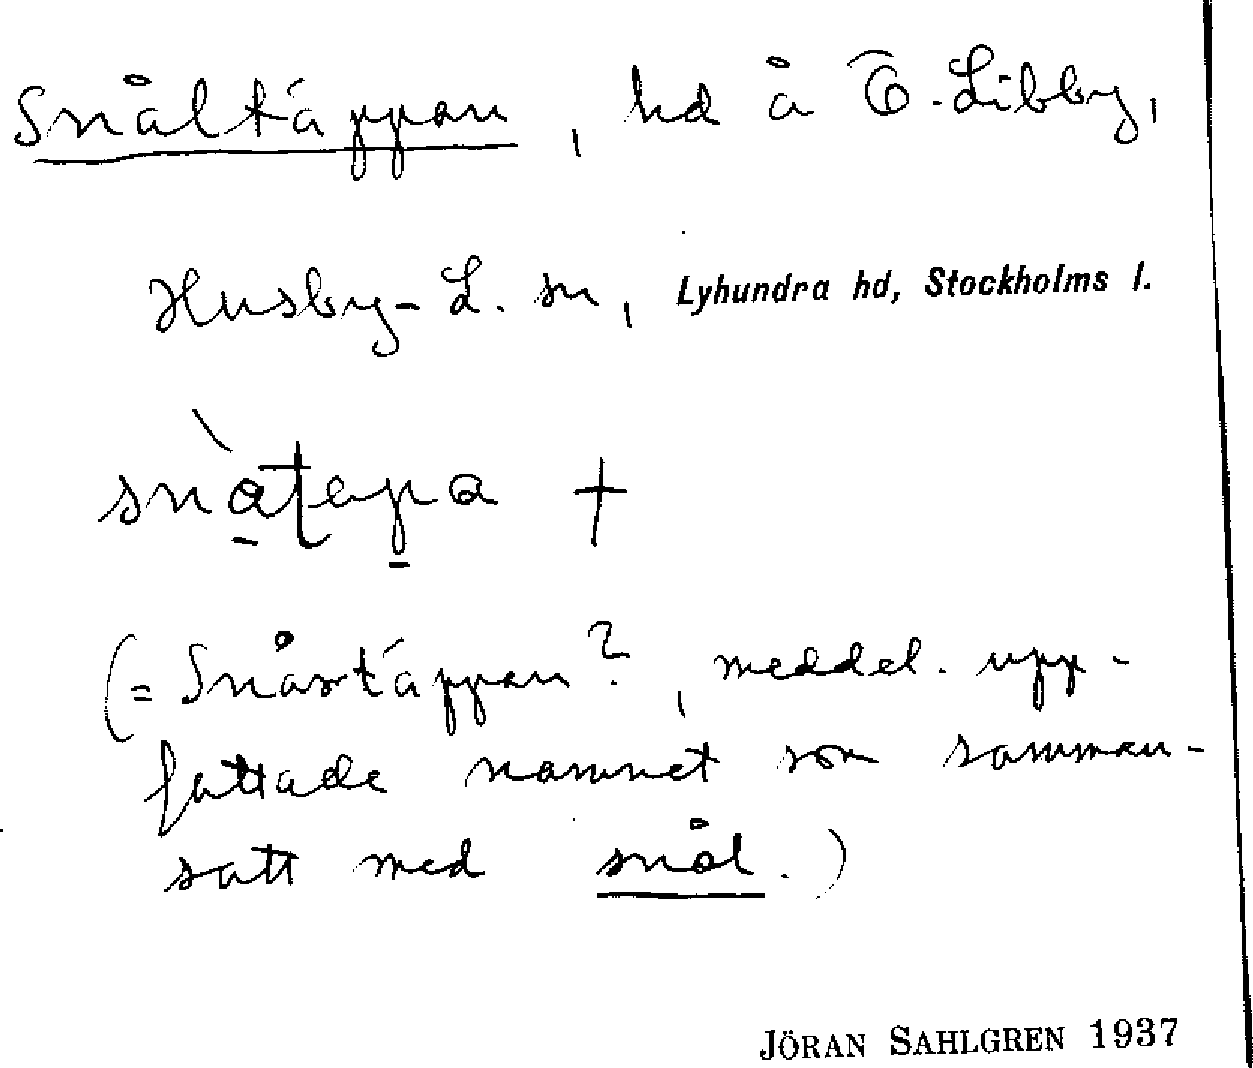 Snåltäppan, hd å Ö. Libby,
Husby-L. sn, Lyhundra hd, Stockholms l.
(= Snårtäppan?, meddel. upp-
fattade namnet som samman-
satt med snål.)
JÖRAN SAHLGREN 1937